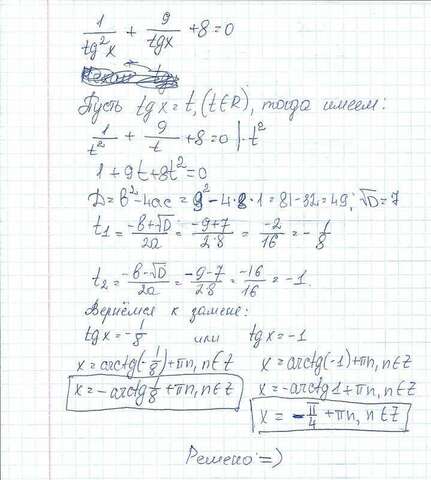 1/tg²x + 9/tgx + 8 = 0
Пусть tgx = t, (t∈R), тогда имеем:
1/t² + 9/t + 8 = 0 | · t²
1 + 9t + 8t² = 0
D = b² - 4ac = 9² - 4·8·1 = 81 - 32 = 49; √D = 7
t₁ = (-b+√D)/2a = (-9+7)/2·8 = -2/16 = -1/8
t₂ = (-b-√D)/2a = (-9-7)/2·8 = -16/16 = -1.
Вернёмся к замене:
tgx = -1/8 или tgx = -1
x = arctg(-1/8) + πn, n∈Z x = arctg(-1) + πn, n∈Z
x = -arctg 1/8 + πn, n∈Z x = -arctg1 + πn, n∈Z
x = -π/4 + πn, n∈Z
Решено =)